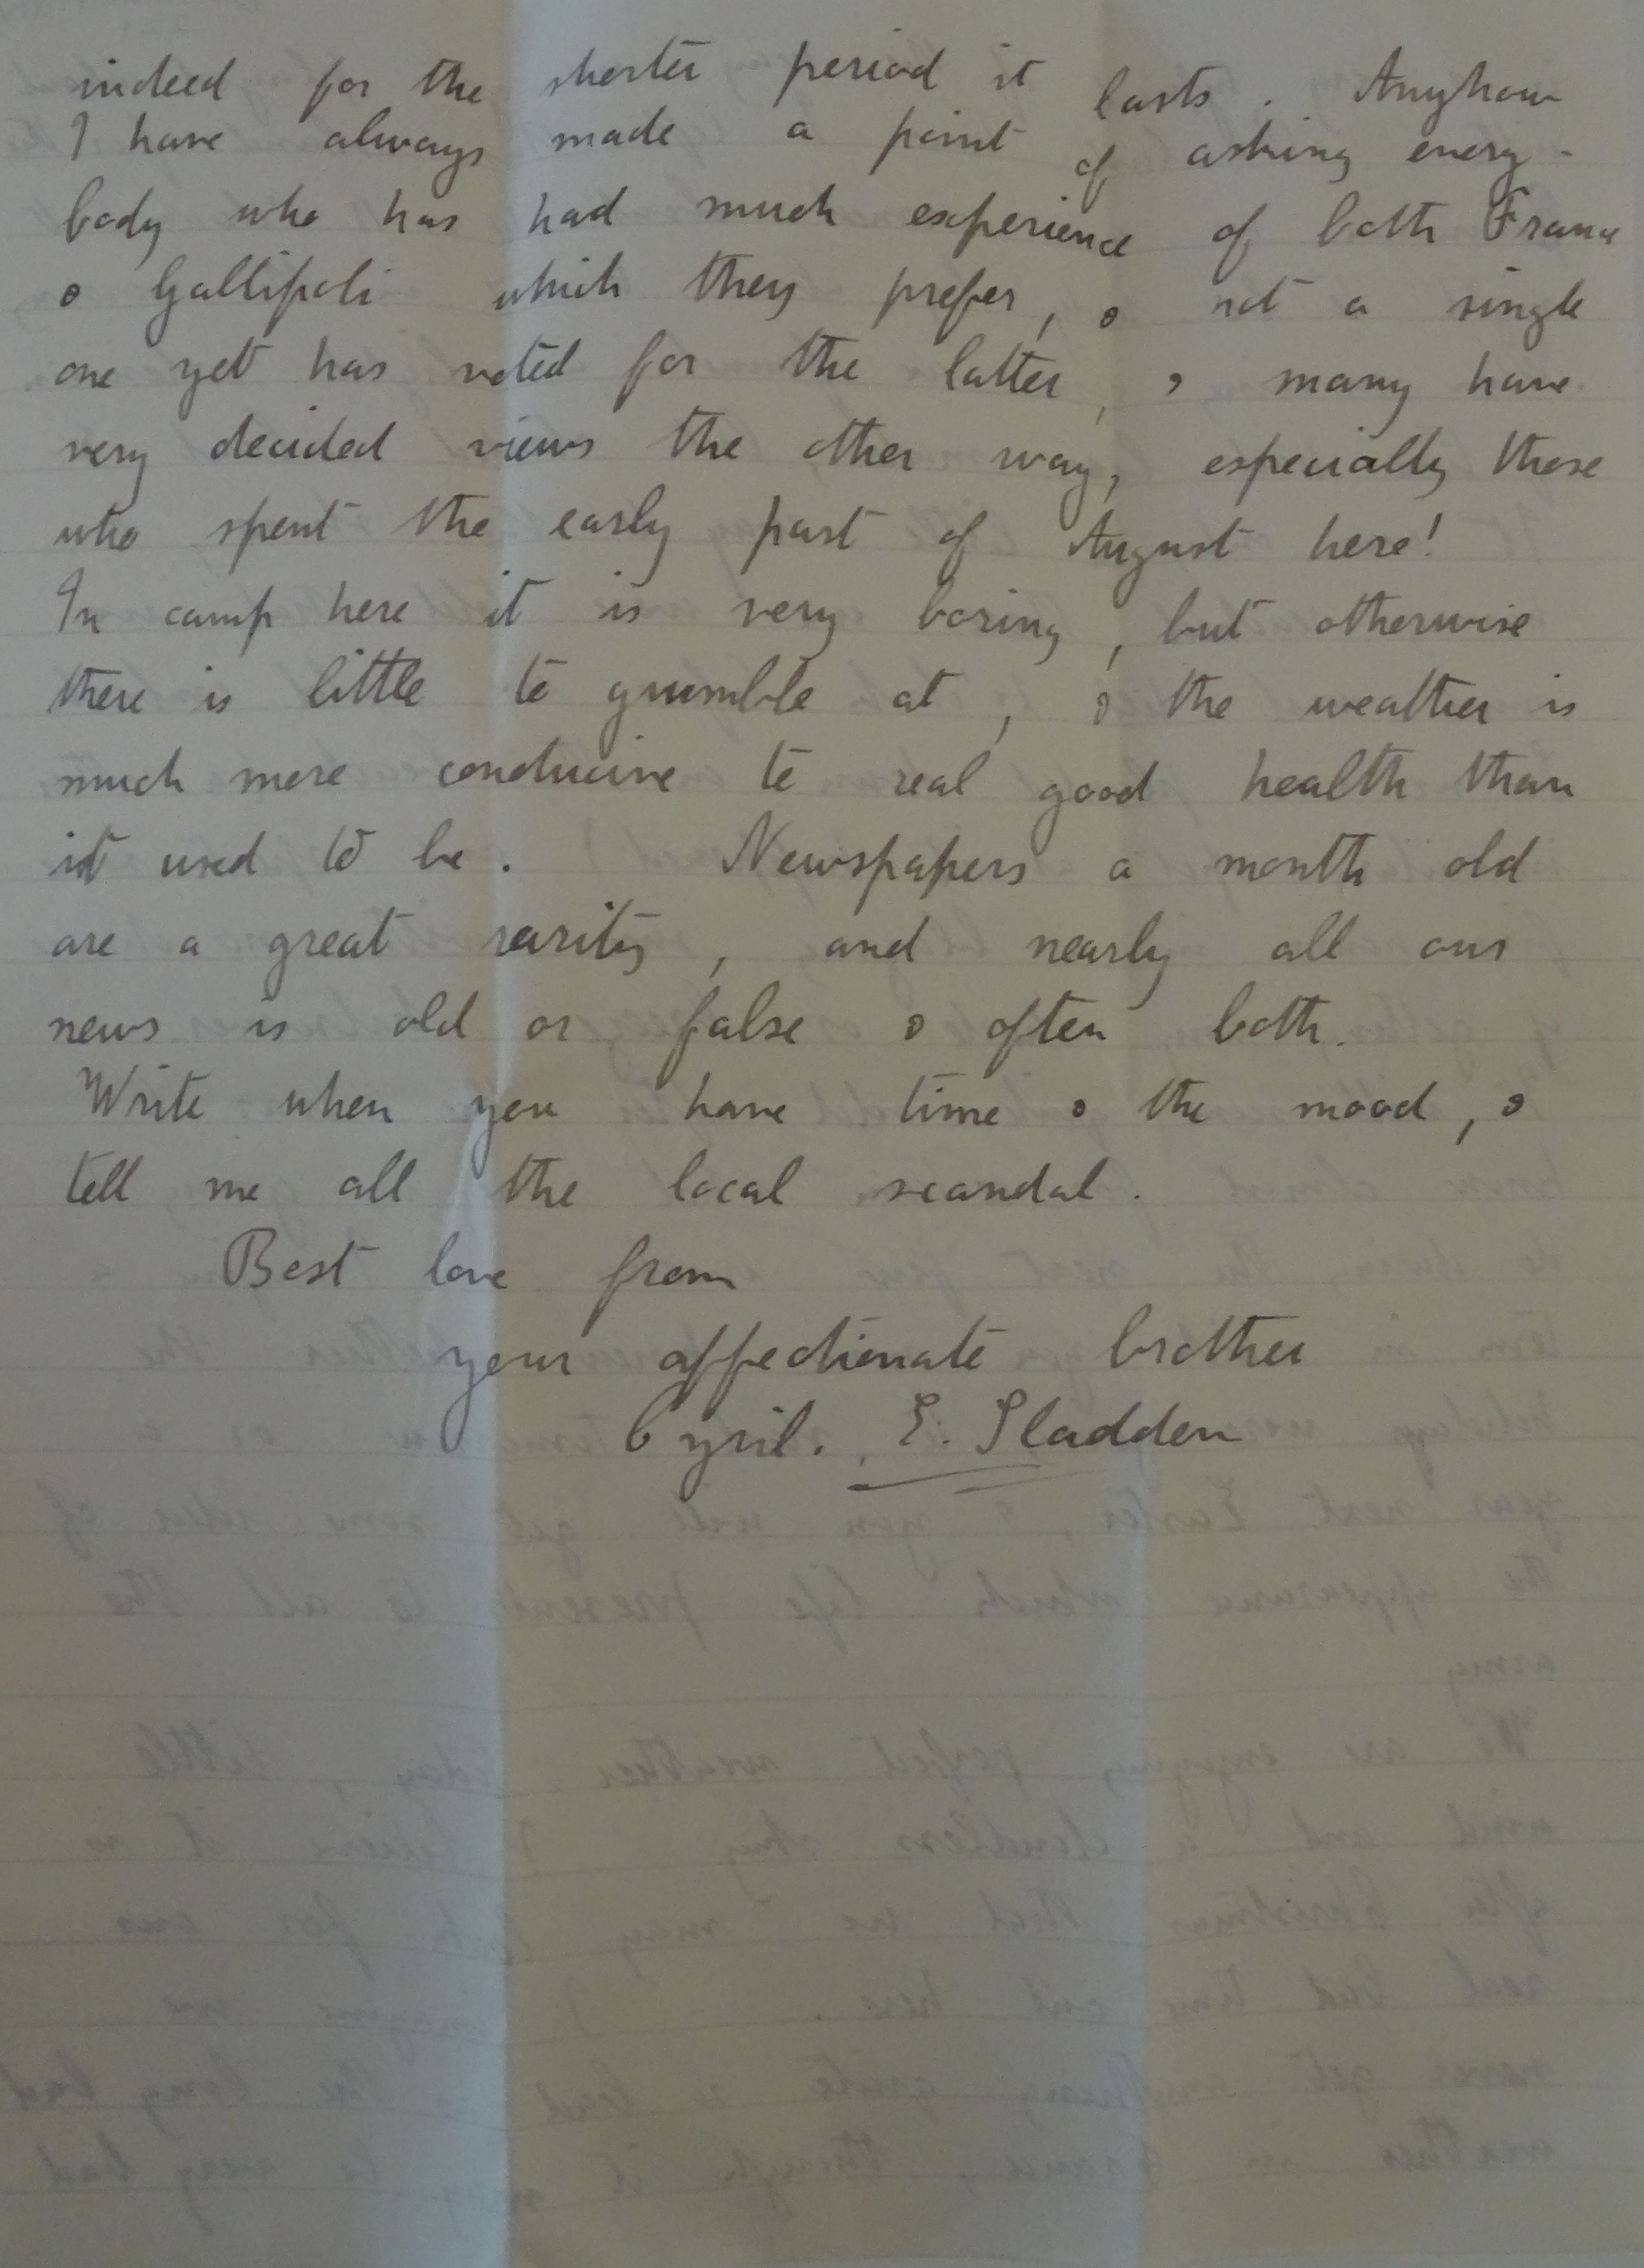 indeed for the shorter period it lasts. Anyhow
I have always made a point of asking every-
body who has had much experience of both France
& Gallipoli which they prefer, & not a single
one yet has voted for the latter, & many have
very decided views the other way, especially those
who spent the early part of August here!
In camp here it is very boring, but otherwise
there is little to grumble at, & the weather is
much more conducive to real good health than
it used to be. Newspapers a month old
are a great rarity, and nearly all our
news is old or false & often both.
Write when you have time & the mood, &
tell me all the local scandal.
Best love from
your affectionate brother
Cyril. E. Sladden